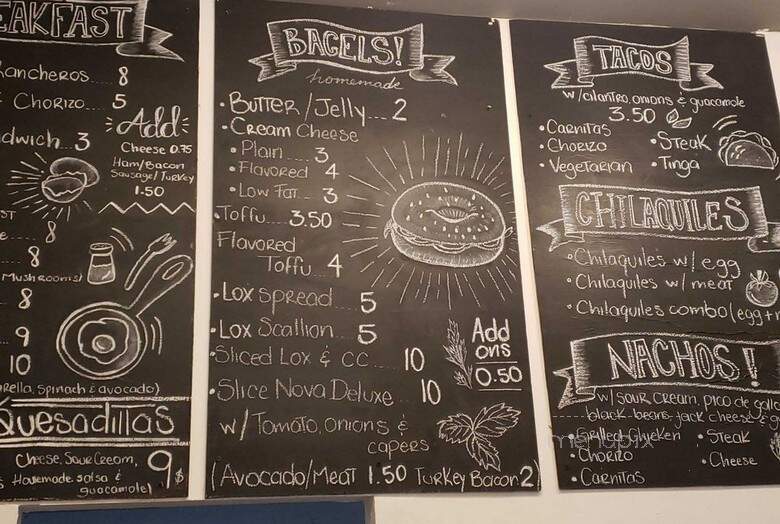 BAGELS!
homemade
• Butter/Jelly... 2
• Cream Cheese
• Plain.... 3
• Flavored 4
• Low Fat... 3
• Toffu... 3.50
Flavored
Toffu... 4
• Lox Spread.... 5
• Lox Scallion.... 5
• Sliced Lox & CC.... 10
• Slice Nova Deluxe... 10
w/Tomato, onions &
capers
(Avocado/Meat 1.50 Turkey Bacon 2)
Add
ons
0.50
Rancheros 8
Chorizo... 5
3
Add
Cheese 0.75
Ham/Bacon
Sausage/Turkey
1.50
8
Mushrooms)
8
9
10
spinach & avocado)
Quesadillas
Cheese, Sour Cream,
Homemade salsa &
guacamole)
9$
TACOS
w/cilantro, onions & guacamole
3.50
• Carnitas
• Chorizo
• Vegetarian
• Steak
• Tinga
CHILAQUILES
• Chilaquiles w/ egg
• Chilaquiles w/ meat
• Chilaquiles combo (egg +
NACHOS!
w/sour cream, pico de gallo
black-beans, jack cheese &
• Grilled Chicken
• Chorizo
• Carnitas
• Steak
• Cheese
menupix